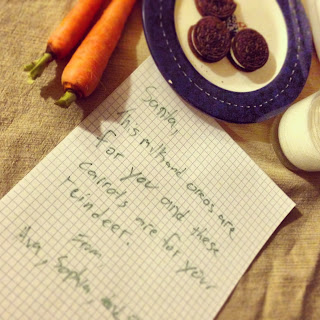 Santa,
This milk and oreos are
for you and these
carrots are for your
reindeer.
From,
Ava, Sophia,